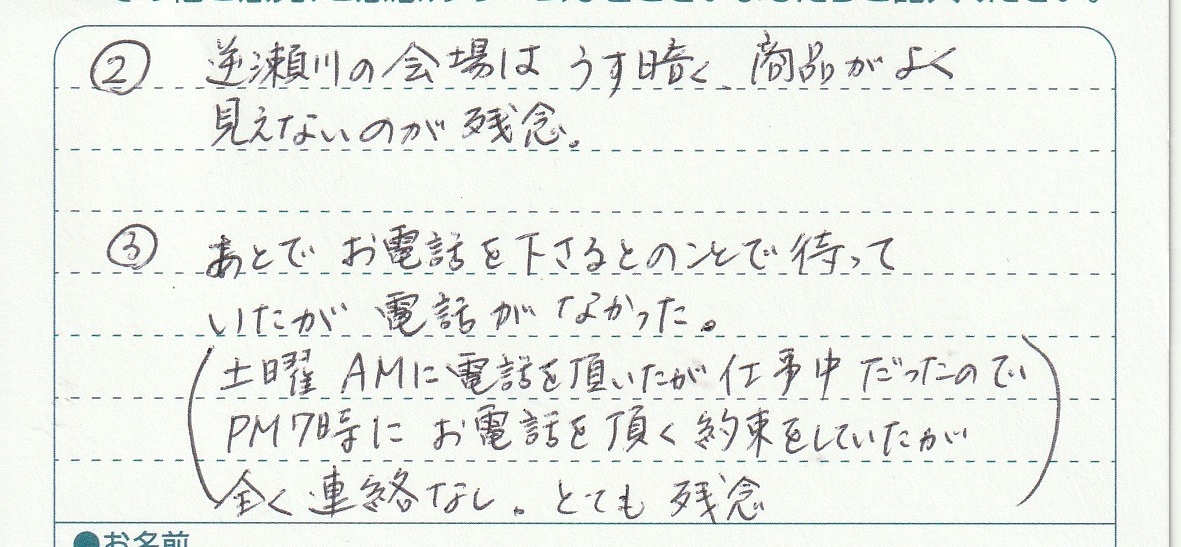 ② 逆瀬川の会場は うす暗く、商品がよく
見えないのが 残念。
③ あとで お電話を下さるとのことで待って
いたが 電話が なかった。
(土曜 AMに電話を頂いたが仕事中だったので
PM7時に お電話を頂く約束をしていたが
全く連絡なし。とても 残念)
●お名前